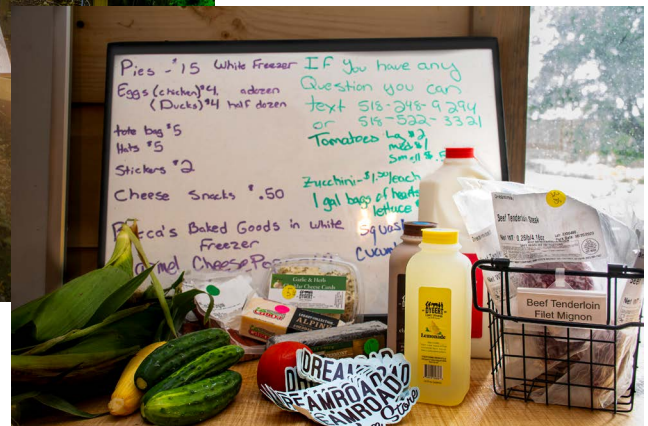 Pies - $15 White Freezer
Eggs (chicken) $4, adozen
(Ducks) $4 half dozen
tote bag $5
Hats $5
Stickers $2
Cheese Snacks $.50
Baked Goods in White
Freezer
Cheese
If you have any
Question you can
text 518-248-9294
or 518-522-3321
Tomatoes Lg $2
med $1
Small $.5
Zucchini - $1.50/each
1 gal bags of hearts
lettuce
Squas
Cucum
Garlic & Herb
Cheese Curds
ALPIN
DYGERT
Lemonade
Beef Tenderloin Steak
Beef Tenderloin
Filet Mignon
DREAM
DREAMROAD
EAMROAD
Store